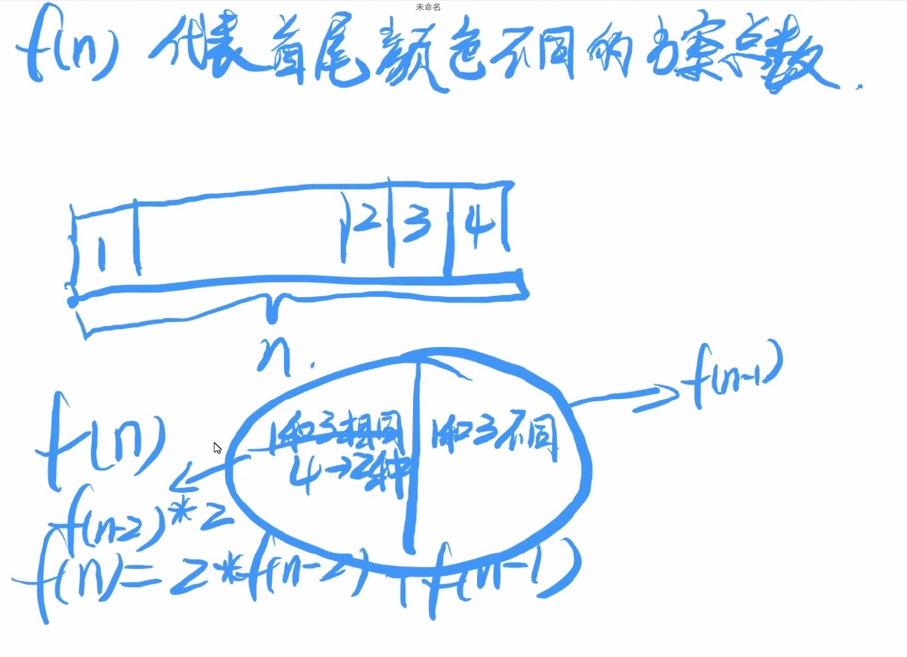 未命名
f(n) 代表首尾颜色不同的方案总数.
1 2 3 4
n.
f(n-1)
f(n)
1和3相同 1和3不同
4→2种
f(n-2)*2
f(n)=2*f(n-2)+f(n-1)